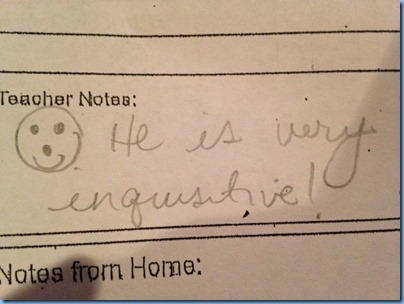 Teacher Notes:
He is very
inquisitive!
Notes from Home: